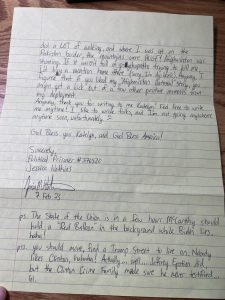 did a LOT of walking, and where I was at on the
Pakistan border, the mountains were huge! Afghanistan was
stunning. If it wasn't full of people trying to kill me
I'd buy a vacation home there. Anyway, I
figure that if you liked my Afghanistan story, you
might get a kick out of a few other positive moments from
my deployment.
Anyway, thank you for writing to me Katelyn! Feel free to write
me anytime! I like to write folks, and I'm not going anywhere
anytime soon, unfortunately.
God Bless you Katelyn, and God Bless America!
Sincerely,
Political Prisoner #376520
Jessica Watkins
7 Feb 23
ps. The State of the Union is in a few hour. McCarthy should
hold a "Red Balloon in the background while Biden lies.
haha!
ps. you should move, find a Trump Street to live on. Nobody
likes Clinton, hahaha! Actually... well... Jeffrey Epstein did,
but the Clinton Crime Family made sure he never testified...